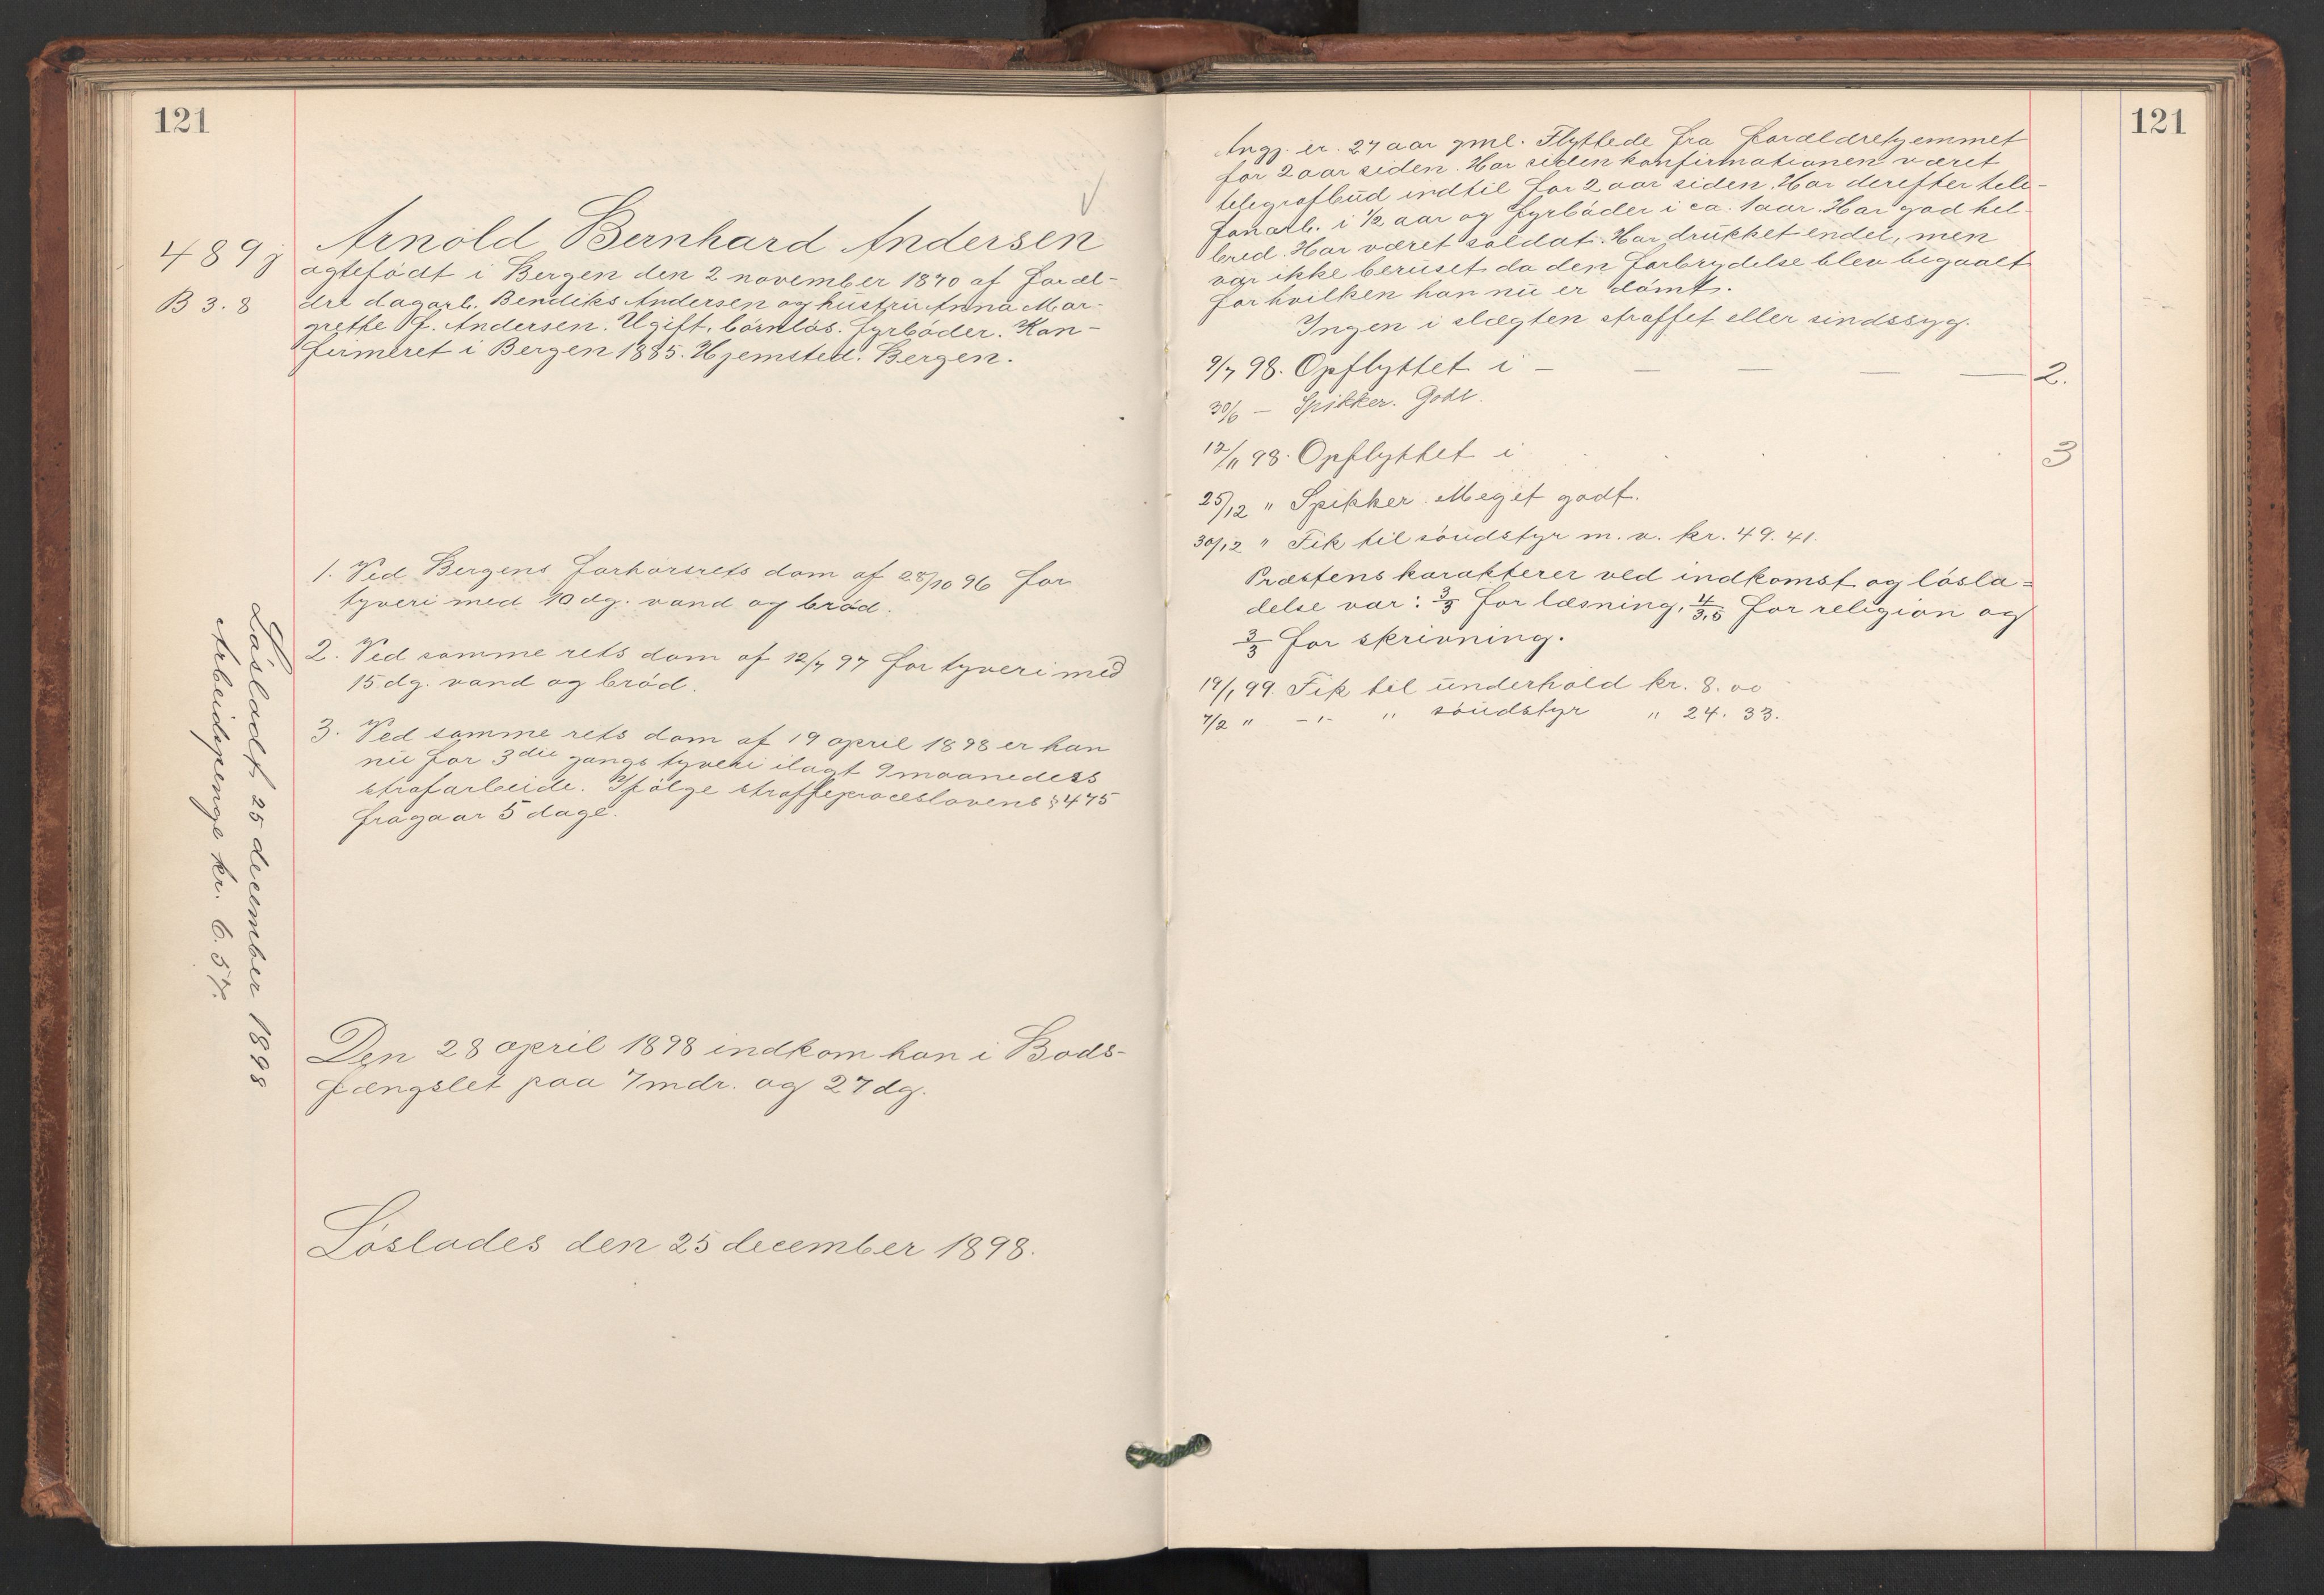 121
489j
B 3. 8
Arnold Bernhard Andersen
ægtefödt i Bergen den 2 november 1870 af foræl-
dre dagarb. Bendiks Andersen og hustru Anna Mar-
grethe f. Andersen. Ugift, börnlös. Fyrböder. Kon-
firmeret i Bergen 1885. Hjemsted: Bergen.
1. Ved Bergens forhørsrets dom af 28/10 96 for
tyveri med 10 dg. vand og bröd.
2. Ved samme rets dom af 12/7 97 for tyveri med
15 dg. vand og bröd.
3. Ved samme rets dom af 19 april 1898 er han
nu for 3die gangs tyveri ilagt 9 maaneders
strafarbeide. Ifölge straffeproceslovens § 475
fragaar 5 dage.
Lösladt 25 december 1898
Arbeidspenge kr. 6.57.
Den 28 april 1898 indkom han i Bods-
fængslet paa 7 mdr. og 27 dg.
Löslades den 25 december 1898.
121
Angj. er 27 aar gml. Flyttede fra forældrehjemmet
for 2 aar siden. Har siden konfirmationen været
telegrafbud indtil for 2 aar siden. Har derefter tele-
fonarb. i 1/2 aar og fyrböder i ca. 1 aar. Har god hel-
bred. Har været soldat. Har drukket endel, men
var ikke beruset da den forbrydelse blev begaaet
for hvilken han nu er dömt.
Ingen i slægten straffet eller sindssyg.
9/7 98. Opflyttet i — — — — — 2.
30/6 — Spikker. Godt.
12/11 98. Opflyttet i . . . . . 3
25/12 " Spikker. Meget godt.
30/12 " Fik til söudstyr m. v. kr. 49. 41.
Præstens karakterer ved indkomst og lösla-
delse var: 3/3 for læsning, 4/3,5 for religion og
3/3 for skrivning.
19/1 99. Fik til underhold kr. 8. 00
7/2 " -"- " söudstyr " 24. 33.